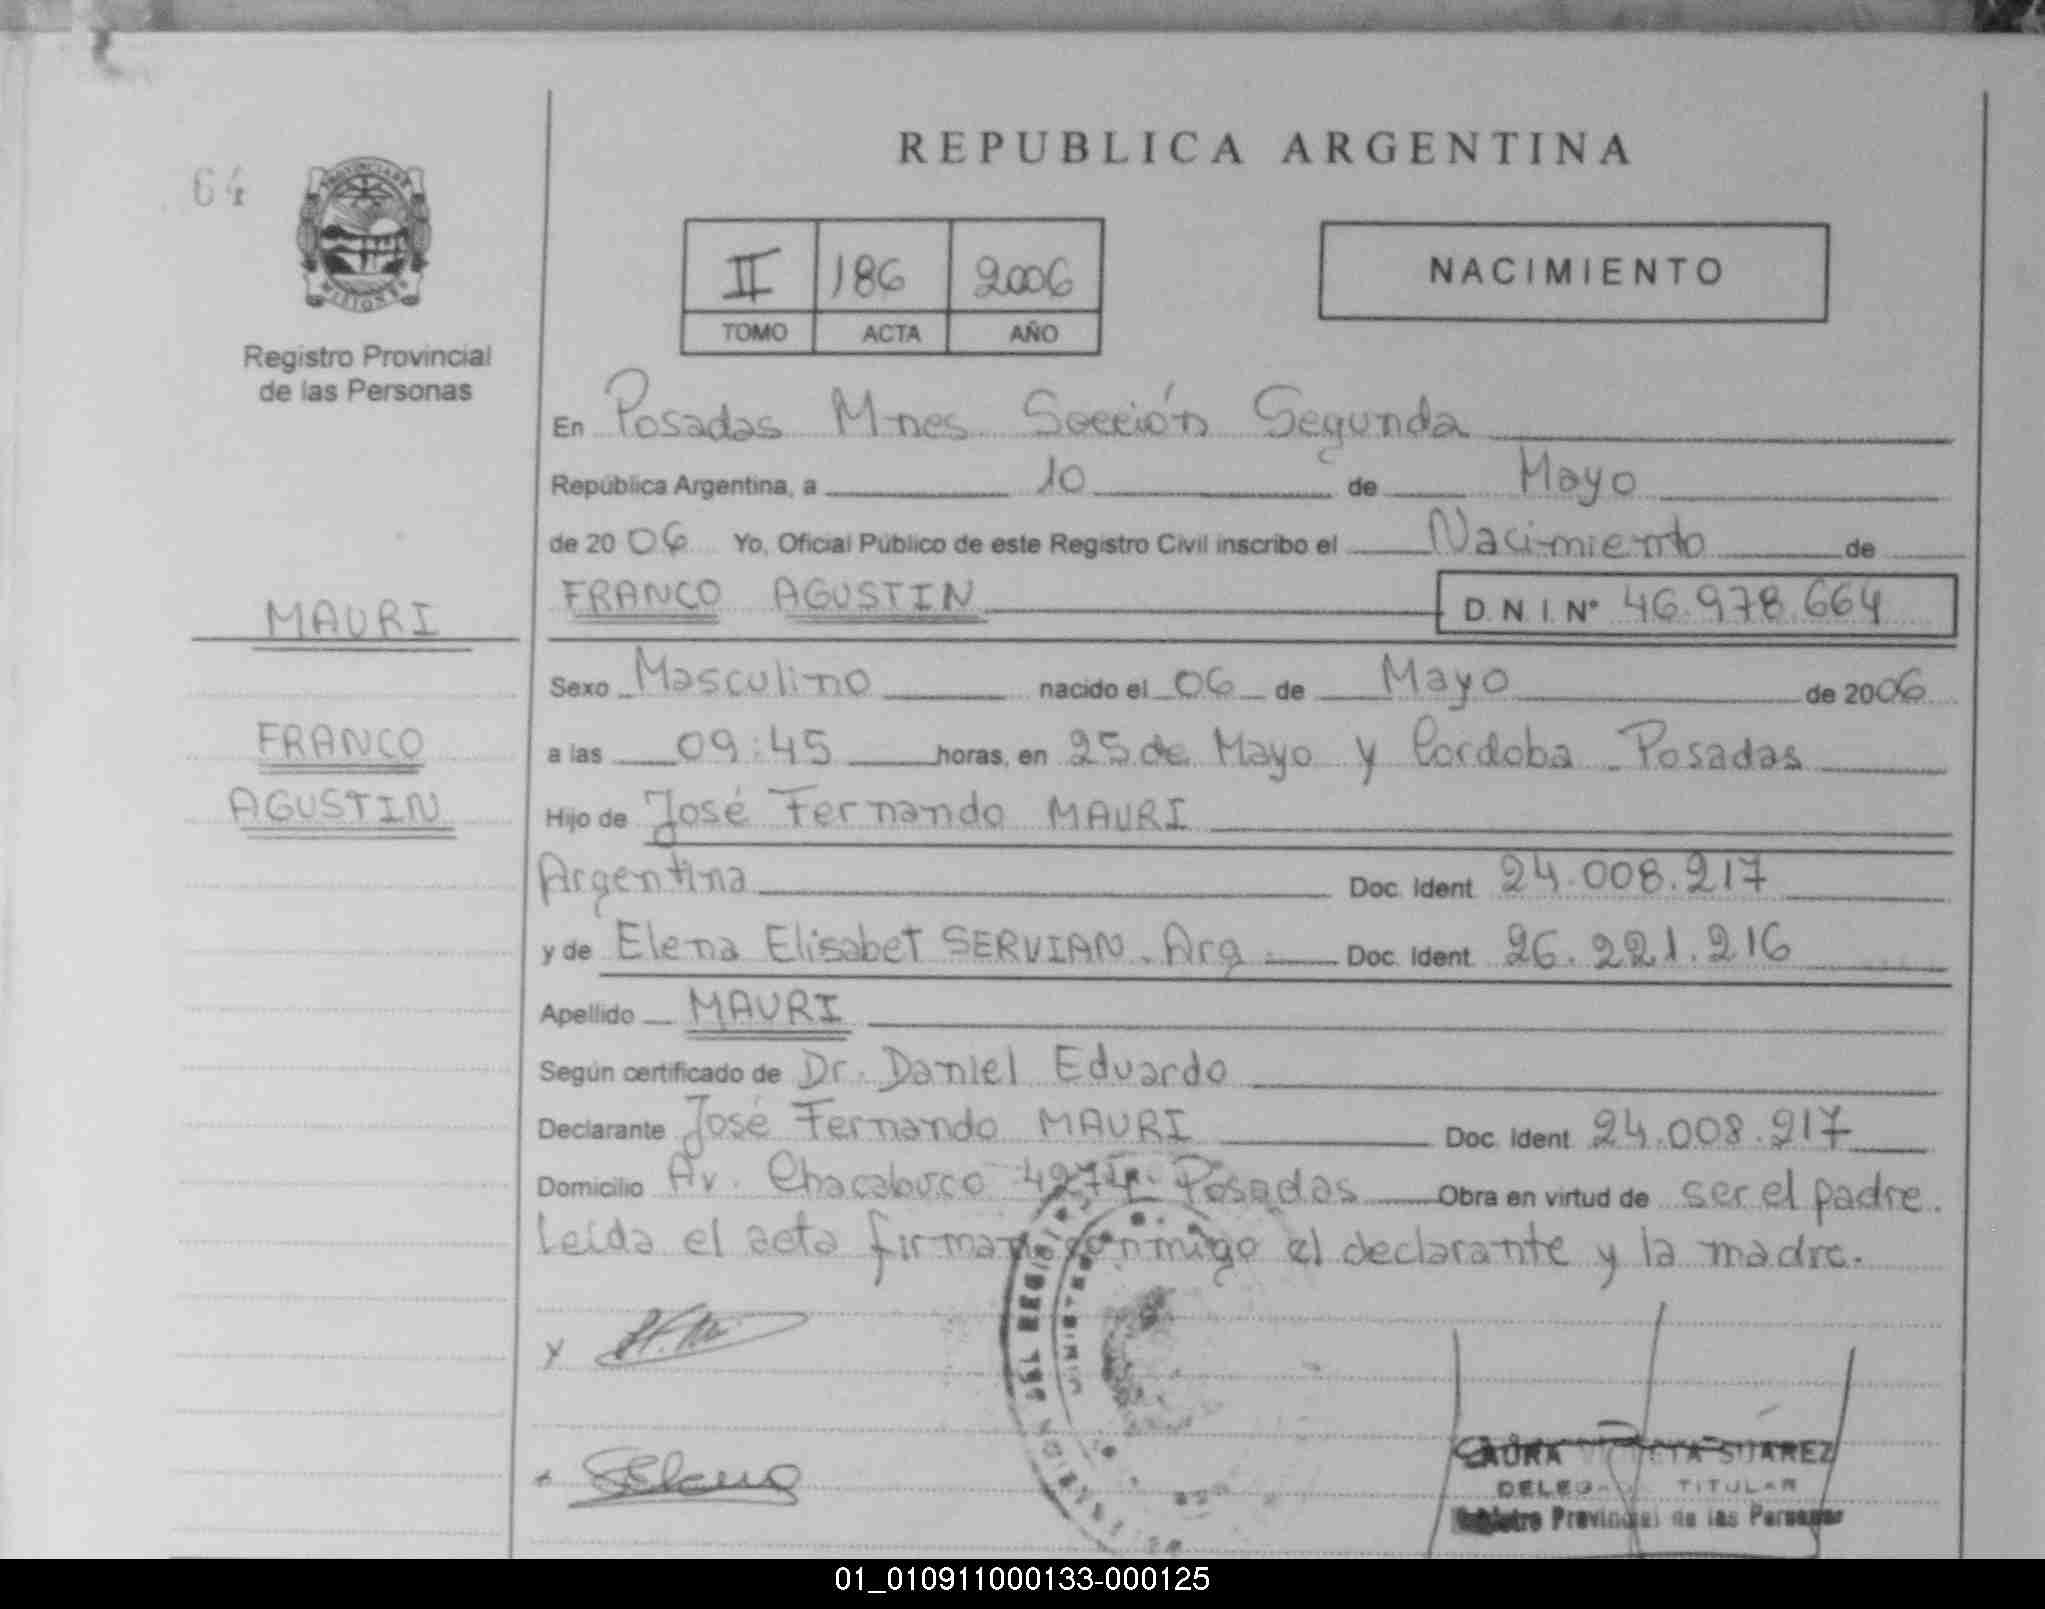 REPUBLICA ARGENTINA
64
PROVINCIA DE
MISIONES
Registro Provincial
de las Personas
II 186 2006
TOMO ACTA AÑO
NACIMIENTO
En Posadas Mnes Sección Segunda
República Argentina, a 10 de Mayo
de 2006 Yo, Oficial Público de este Registro Civil inscribo el Nacimiento de
FRANCO AGUSTIN D.N.I.Nº 46.978.664
MAURI
FRANCO
AGUSTIN
Sexo Masculino nacido el 06 de Mayo de 2006
a las 09:45 horas, en 25 de Mayo y Cordoba - Posadas
Hijo de José Fernando MAURI
Argentina Doc. Ident. 24.008.217
y de Elena Elisabet SERVIAN. Arg Doc. Ident. 26.221.216
Apellido MAURI
Según certificado de Dr. Daniel Eduardo
Declarante José Fernando MAURI Doc. Ident. 24.008.217
Domicilio Av. Chacabuco Posadas Obra en virtud de ser el padre.
Leída el acta firman conmigo el declarante y la madre.
LAURA SUAREZ
TITULAR
Provincial de las Personas
01_010911000133-000125